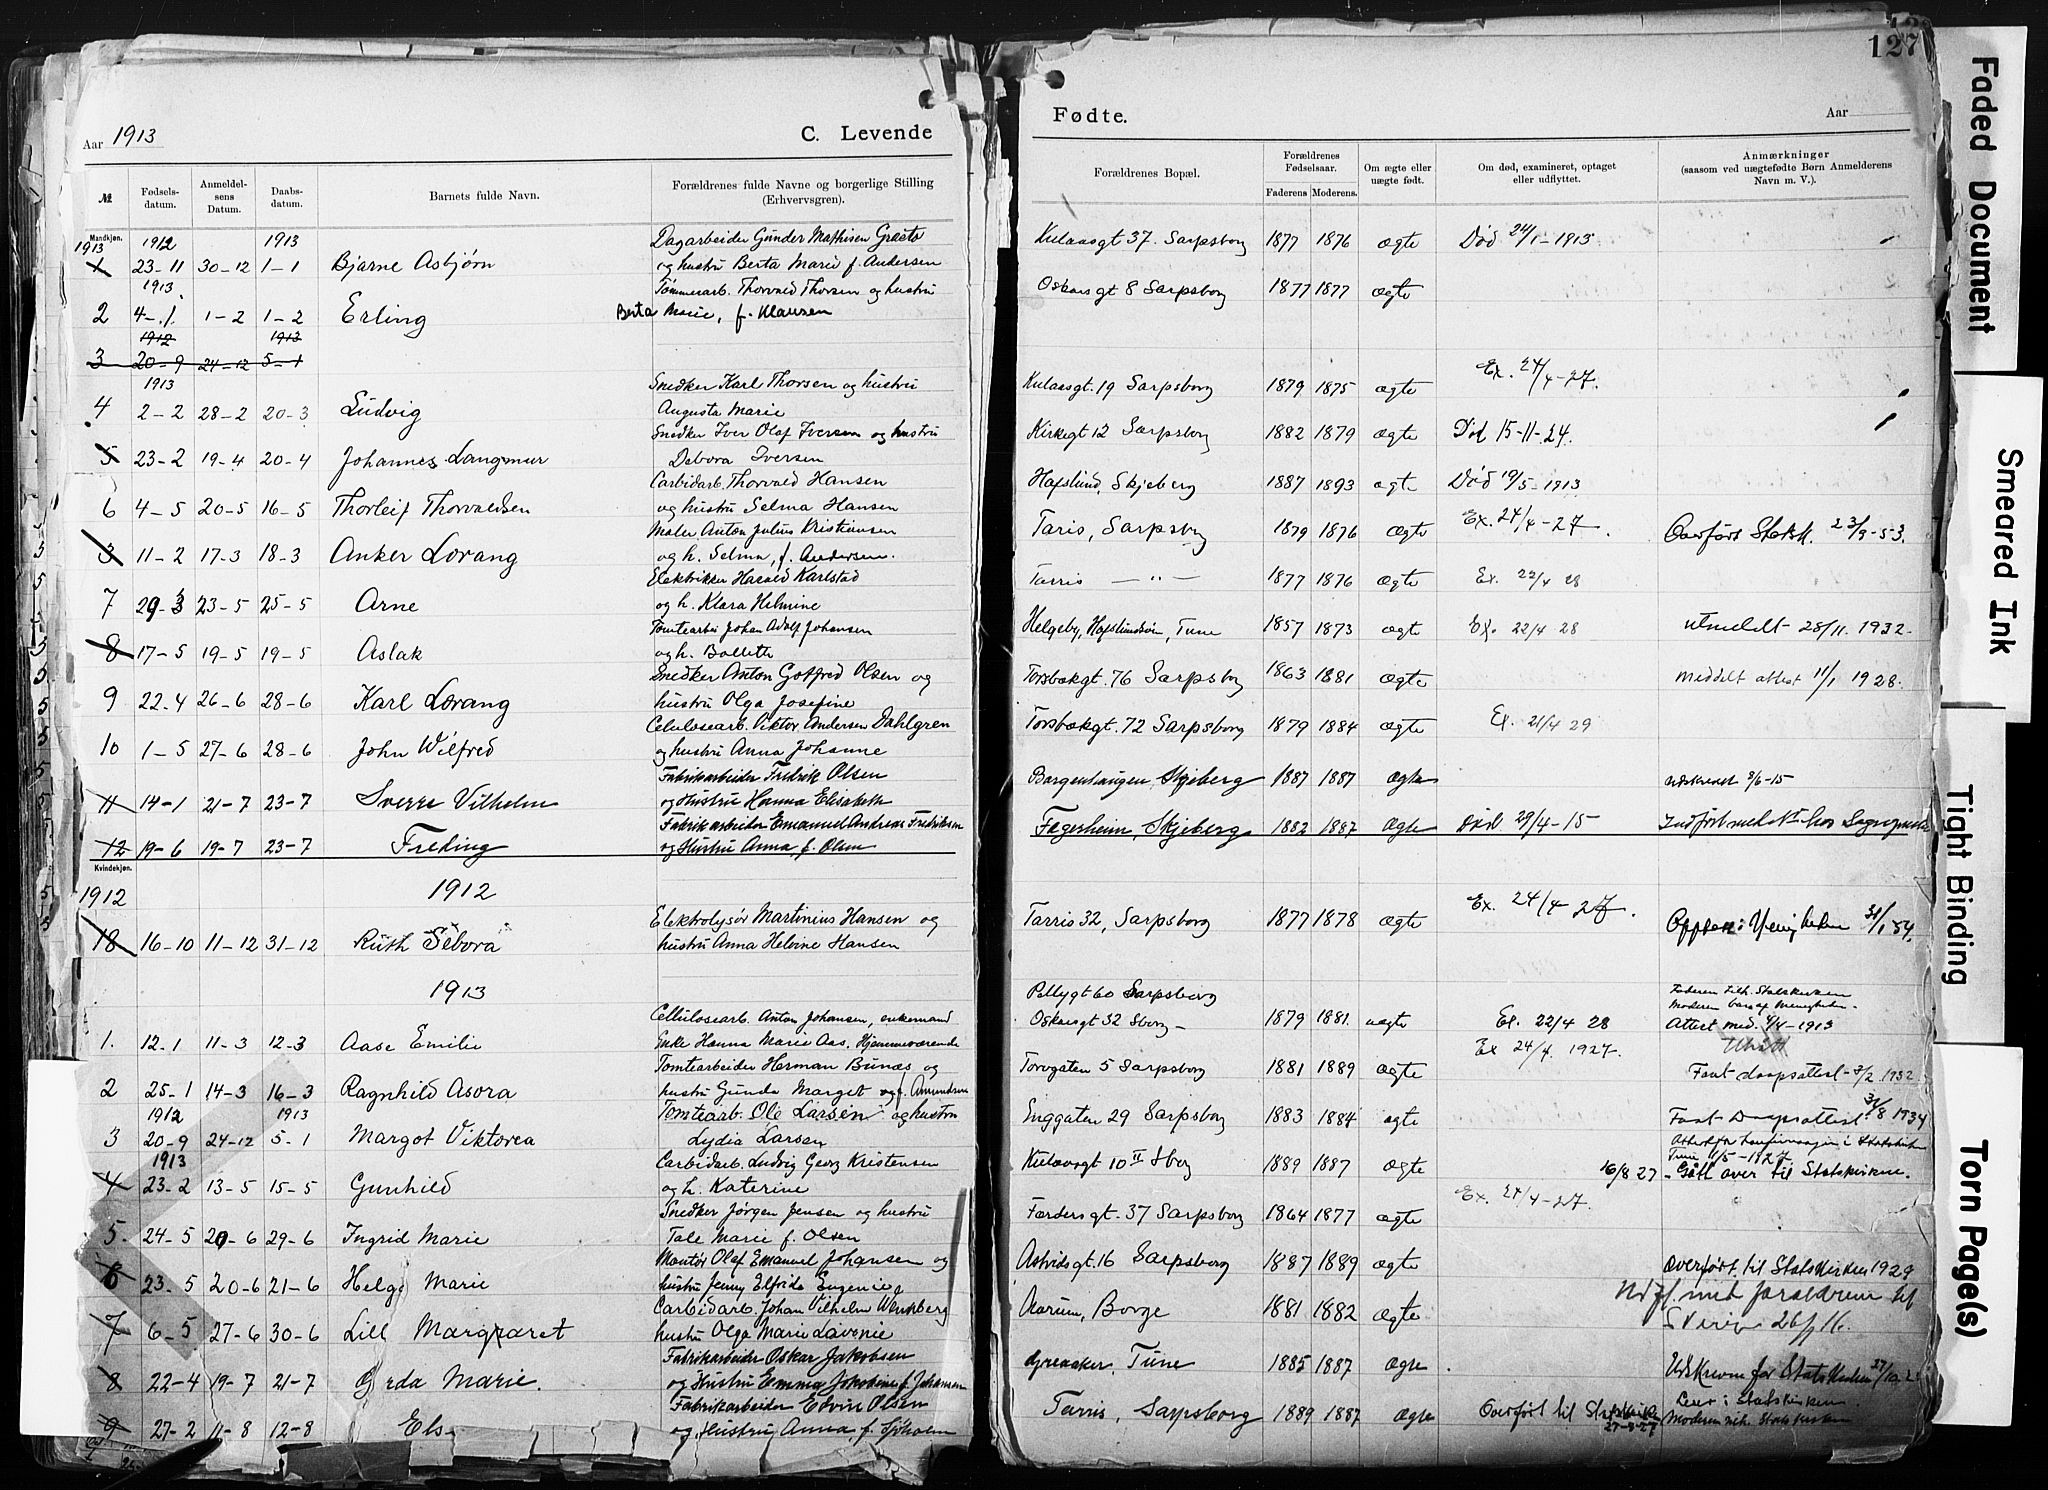 127
Aar 1913
C. Levende
Fødte.
Aar
№
Fødsels-datum.
Anmeldel-sens Datum.
Daabs-datum.
Barnets fulde Navn.
Forældrenes fulde Navne og borgerlige Stilling (Erhvervsgren).
Forældrenes Bopæl.
Forældrenes Fødselsaar.
Faderens Moderens.
Om ægte eller uægte født.
Om død, examineret, optaget eller udflyttet.
Anmærkninger (saasom ved uægtefødte Børn Anmelderens Navn m. V.).
Mandkjøn.
1913 1912 1913 Dagarbeider Gunder Mathisen
1 23-11 30-12 1-1 Bjarne Asbjørn og hustru Berta Marie f. Andersen Kulaasgt 37. Sarpsborg 1877 1876 ægte Død 24/1-1913
1913 Tømmerarb. Thorvald Thorsen og hustru
2 4-1 1-2 1-2 Erling Berta Marie, f. Klausen Oskarsgt 8 Sarpsborg 1877 1877 ægte
1912 1913
3 20-9 24-12 5-1
1913 Snedker Karl Thorsen og hustru
4 2-2 28-2 20-3 Ludvig Augusta Marie Kulaasgt. 19 Sarpsborg 1879 1875 ægte Ex. 24/4-27.
Snedker Iver Olaf Iversen og hustru
5 23-2 19-4 20-4 Johannes Langmur Debora Iversen Kirkegt 12 Sarpsborg 1882 1879 ægte Død 15-11-24.
Carbidarb. Thorvald Hansen
6 4-5 20-5 16-5 Thorleif Thorvaldsen og hustru Selma Hansen Hafslund, Skjeberg 1887 1893 ægte Død 19/5-1913
Maler Anton Julius Kristiansen
3 11-2 17-3 18-3 Anker Lorang og h. Selma, f. Andersen. Taris, Sarpsborg 1879 1876 ægte Ex. 24/4-27. Overført Statsk. 23/9-53.
Elektriker Harald Karlstad
7 29-3 23-5 25-5 Arne og h. Klara Helmine Tarris — " — 1877 1876 ægte Ex. 22/4 28
Tomtearbei Johan Adolf Johansen
8 17-5 19-5 19-5 Aslak og h. Bollette Helgeby, Hafslundsøn, Tune 1857 1873 ægte Ex. 22/4 28 utmeldt 28/11. 1932.
Snedker Anton Gotfred Olsen og
9 22-4 26-6 28-6 Karl Lorang hustru Olga Josefine Torsbækgt. 76 Sarpsborg 1863 1881 ægte meddelt attest 11/1 1928.
Celulosearb. Viktor Andersen Dahlgren
10 1-5 27-6 28-6 John Wilfred og hustru Anna Johanne Torsbækgt. 72 Sarpsborg 1879 1884 ægte Ex. 21/4 29
Fabrikarbeider Fredrik Olsen
11 14-1 21-7 23-7 Sverre Vilhelm og Hustru Hanna Elisabeth Borgenhaugen, Skjeberg 1887 1887 ægte utskrevet 3/6-15
Fabrikarbeider Emanuel Andreas Fredriksen
12 19-6 19-7 23-7 Freding og Hustru Anna f. Olsen Fagerheim Skjeberg 1882 1887 Ægte Død 29/4-15
Kvindekjøn.
1912 1912
Elektrolysør Martinius Hansen og
18 16-10 11-12 31-12 Ruth Sebora hustru Anna Helvine Hansen Tarris 32, Sarpsborg 1877 1878 ægte Ex. 24/4-27.
1913
Pellygt 60 Sarpsborg
Cellulosearb. Anton Johansen, enkemand
1. 12-1 11-3 12-3 Aase Emilie Enke Hanna Marie Aas. Hjemmeværende Oskarsgt 32 Sborg - 1879 1881 uægte Ex. 22/4 28 Attest med. 4/4-1913
Tomtearbeider Herman Bunæs og
2 25-1 14-3 16-3 Ragnhild Asora hustru Gunda Marget f. Amundsen Torvgaten 5 Sarpsborg 1881 1889 ægte Ex 24/4. 1927. Faat daapsattest 3/2 1932
1912 1913 Tomtearb. Ole Larsen og hustru
3 20-9 24-12 5-1 Margot Viktorea Lydia Larsen Enggaten 29 Sarpsborg 1883 1884 ægte Faat Daapsattest 31/8 1934
1913 Carbidarb. Ludvig Georg Kristensen
4 23-2 13-5 15-5 Gunhild og h. Katerine Kulaasgt 10 II Sborg 1889 1887 ægte 16/8 27 - Gått over til Statskirken.
Snedker Jørgen Jensen og hustru
5. 24-5 20-6 29-6 Ingrid Marie Tale Marie f. Olsen Færdersgt. 37 Sarpsborg 1864 1877 ægte Ex. 24/4-27.
Montør Olaf Emanuel Johansen og
6 23-5 20-6 21-6 Helga Marie hustru Jenny Elfrida Eugenie Astridsgt. 16 Sarpsborg 1887 1889 ægte overført til Statskirken 1929
Carbidarb. Johan Vilhelm Wenkberg
7 6-5 27-6 30-6 Lill Margraret hustru Olga Marie Lavenie Aarum, Borge 1881 1882 ægte Udfl. med forældrene til
Fabrikarbeider Oskar Jakobsen
8 22-4 19-7 21-7 Gerda Marie. og Hustru Emma Jakobine f. Johansen Greaaker, Tune 1885 1887 Ægte
Fabrikarbeider Edvin Olsen
9 27-2 11-8 12-8 Els og Hustru Anna, f. Sjöholm Tarris, Sarpsborg 1889 1887 Ægte Overført til Statskirken 27-8-27
Faded Document
Smeared Ink
Tight Binding
Torn Page(s)